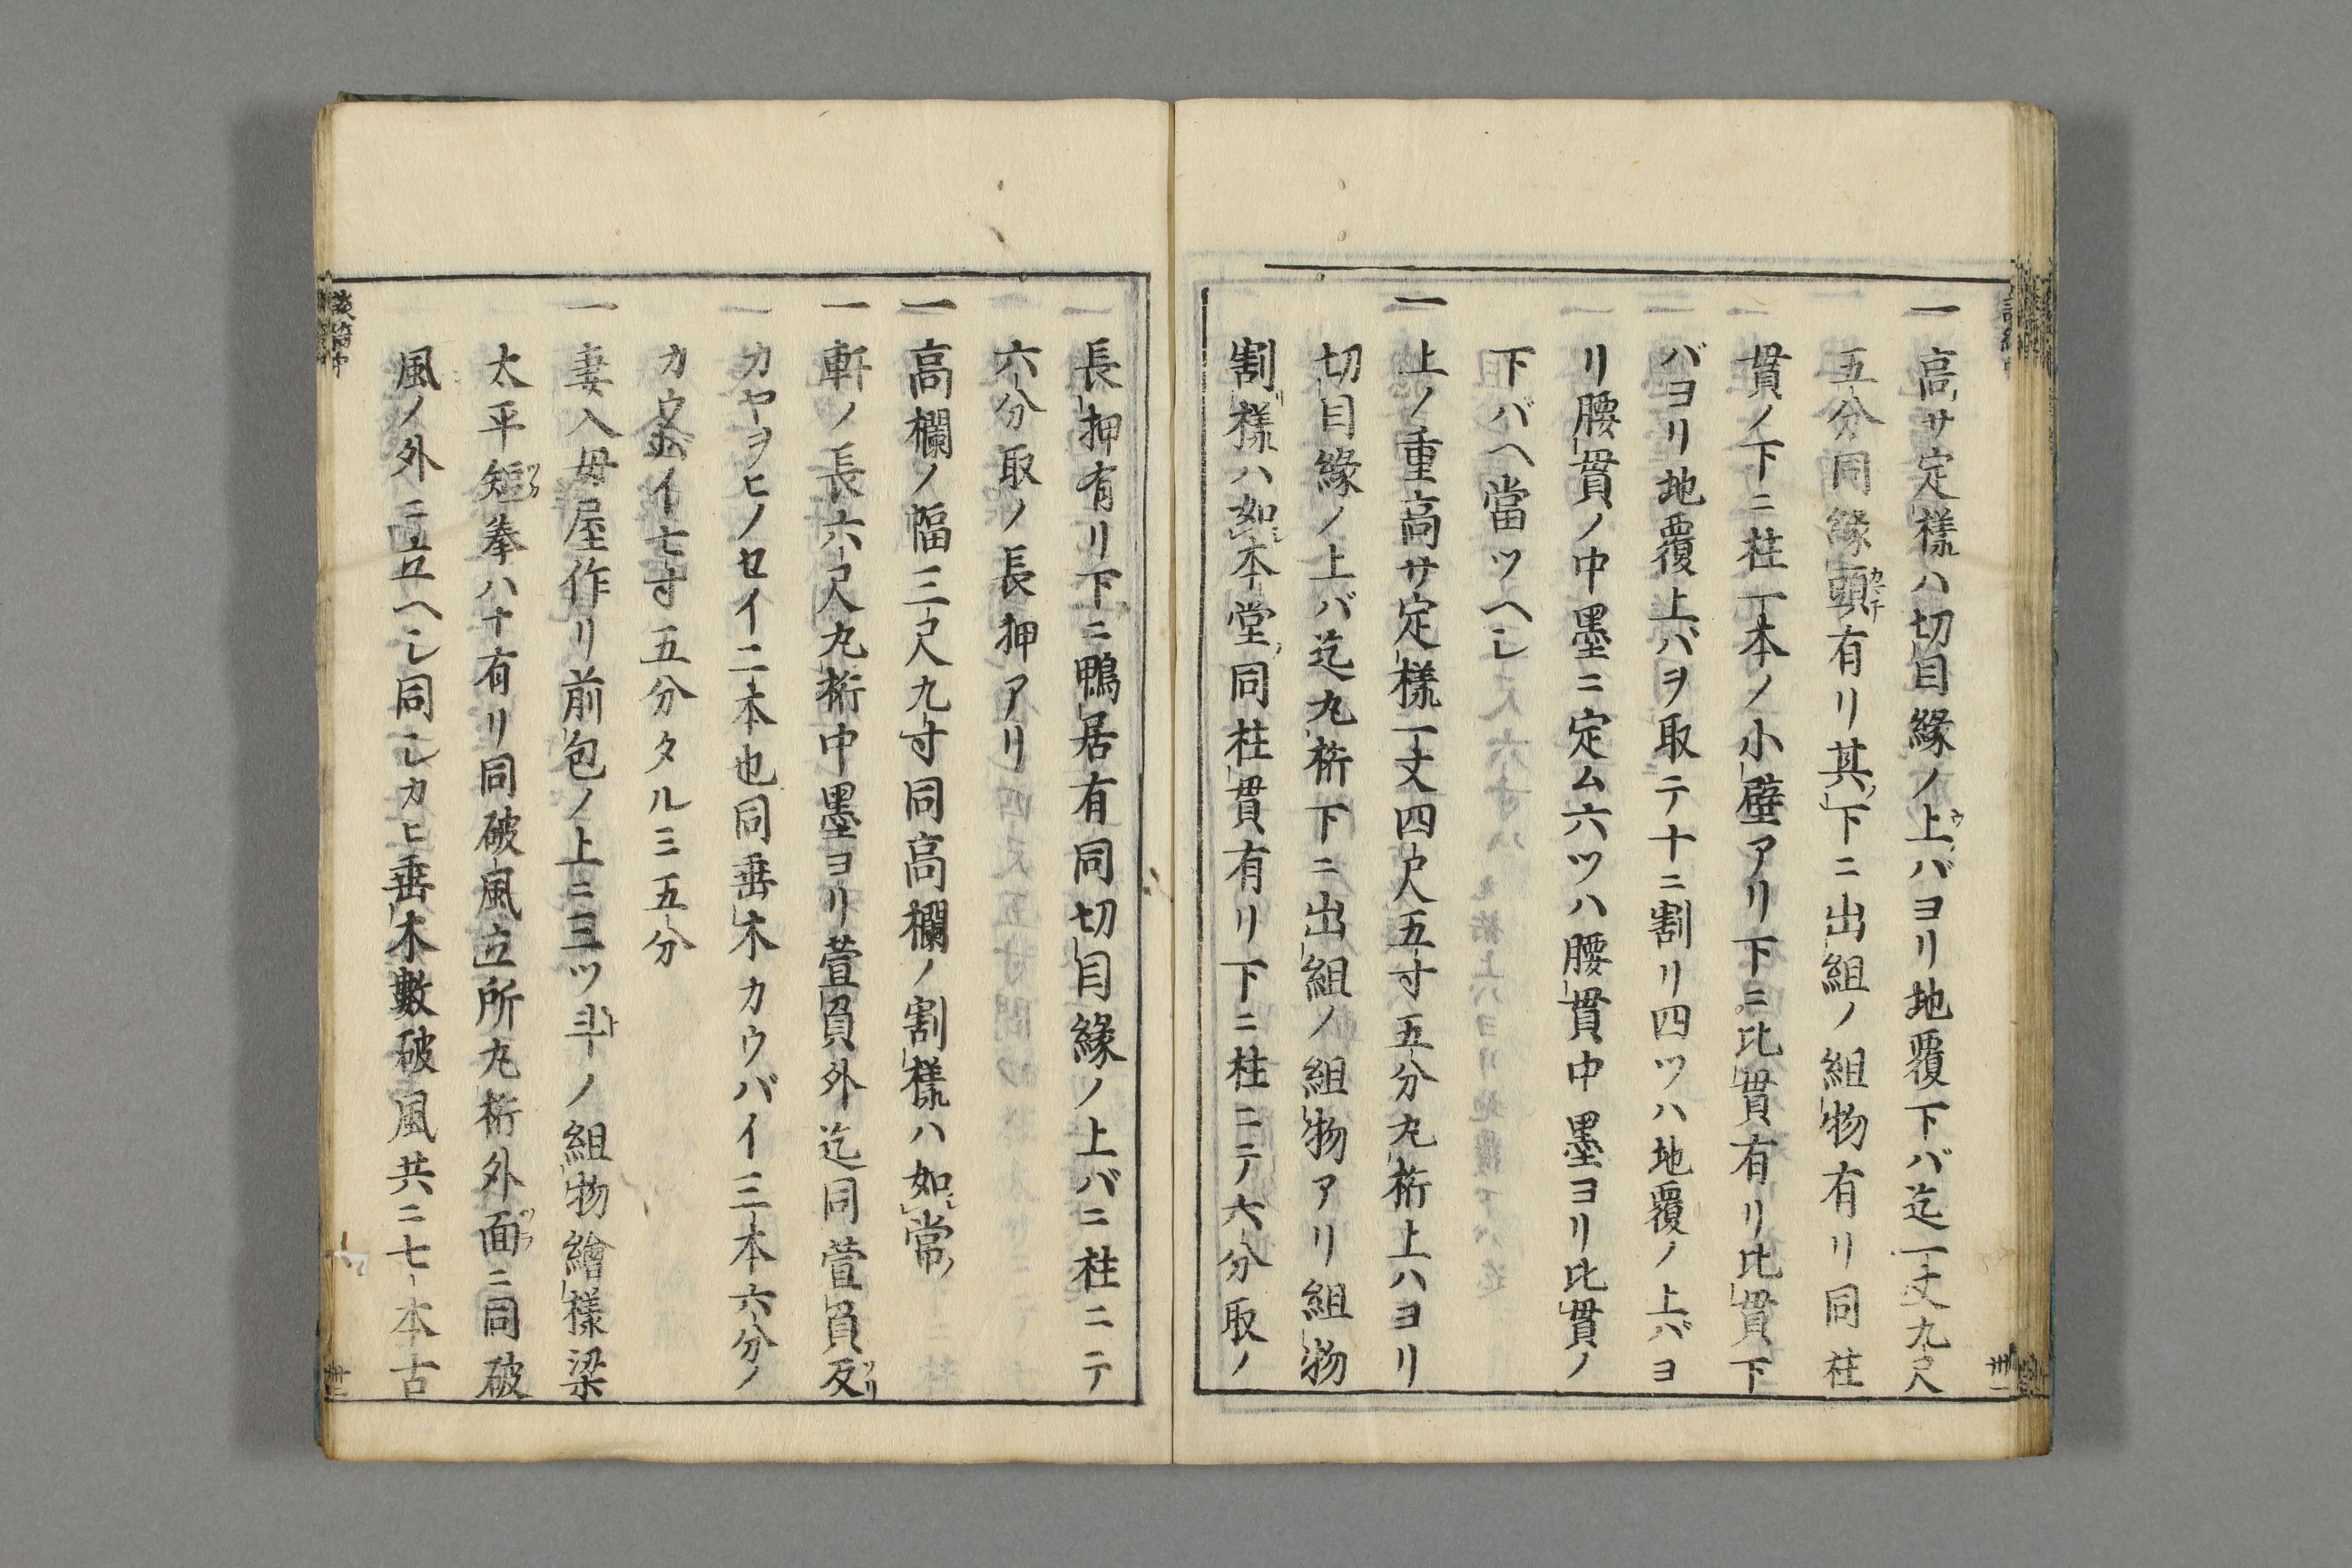 一高サ定樣ハ切目緣ノ上バヨリ地覆下バ迄一丈九尺
五分同緣頭有リ其下ニ出組ノ組物有リ同柱
貫ノ下ニ柱一本ノ小壁アリ下ニ比貫有リ比貫下
バヨリ地覆上バヲ取テ十ニ割リ四ツハ地覆ノ上バヨ
リ腰貫ノ中墨ニ定ム六ツハ腰貫中墨ヨリ比貫ノ
下バヘ當ツヘシ
一上ノ重高サ定樣一丈四尺五寸五分丸桁上ハヨリ
切目緣ノ上バ迄丸桁下ニ出組ノ組物アリ組物
割樣ハ如本堂同柱貫有リ下ニ柱ニテ六分取ノ
長押有リ下ニ鴨居有同切目緣ノ上バニ柱ニテ
六分取ノ長押アリ
一高欄ノ幅三尺九寸同高欄ノ割樣ハ如常
一軒ノ長六尺丸桁中墨ヨリ萱負外迄同萱負反
カヤヲヒノセイ二本也同垂木カウバイ三本六分ノ
カウバイ七寸五分タルミ五分
一妻入母屋作リ前包ノ上ニ三ツ斗ノ組物繪樣梁
太平短拳ハナ有リ同破風立所丸桁外面ニ同破
風ノ外ニ立ヘシ同シカヒ垂木數破風共ニ七本古
卅一